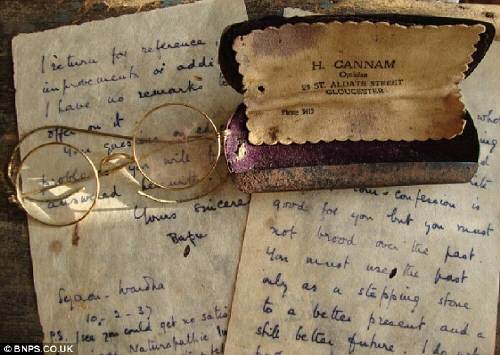 I return for reference
improvements or addi
I have no remarks
offer on it
You
you will
answered
Yours sincere
Bapu
Segaon - Wardha
10-2-37
P.S. I see you could get no satis
Naturopathic
H. CANNAM
Optician
ST. ALDATE STREET
GLOUCESTER
Phone
who
confession is
good for you but you must
not brood over the past.
You must use the past
only as a stepping stone
to a better present and a
still better future. I do
© BNPS.CO.UK